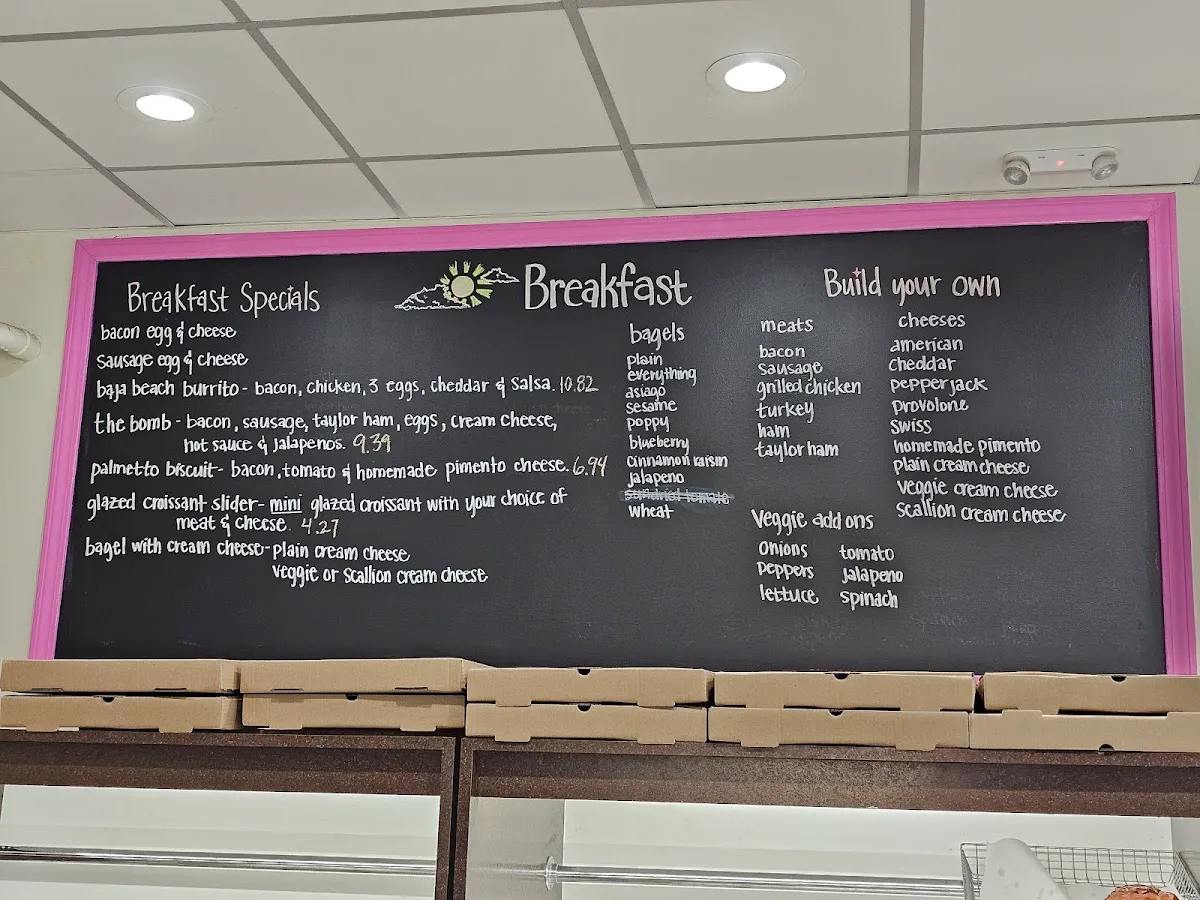 Breakfast Specials
bacon egg & cheese
sausage egg & cheese
baja beach burrito - bacon, chicken, 3 eggs, cheddar & salsa. 10.82
the bomb - bacon, sausage, taylor ham, eggs, cream cheese,
hot sauce & jalapenos. 9.39
palmetto biscuit - bacon, tomato & homemade pimento cheese. 6.94
glazed croissant slider - mini glazed croissant with your choice of
meat & cheese. 4.27
bagel with cream cheese - plain cream cheese
veggie or scallion cream cheese
Breakfast
bagels
plain
everything
asiago
sesame
poppy
blueberry
cinnamon raisin
jalapeno
sundried tomato
wheat
Build your own
meats
bacon
sausage
grilled chicken
turkey
ham
taylor ham
cheeses
american
cheddar
pepperjack
provolone
swiss
homemade pimento
plain cream cheese
veggie cream cheese
scallion cream cheese
Veggie add ons
onions
peppers
lettuce
tomato
jalapeno
spinach